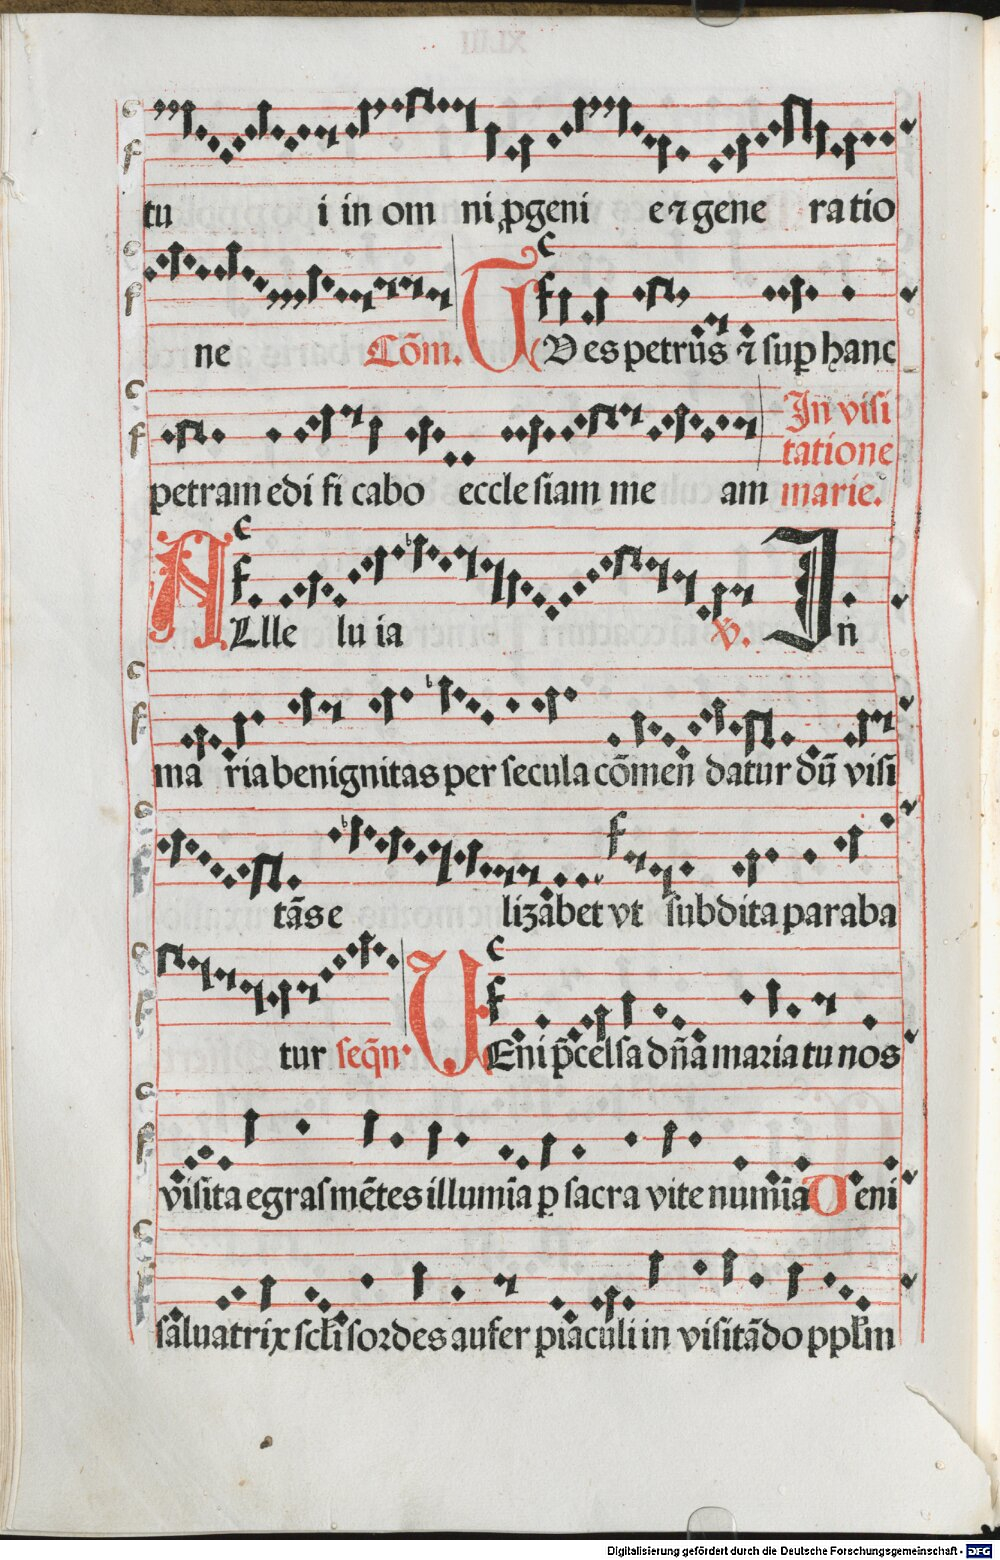 tu i in om ni ꝓgeni e ⁊ gene ratio
ne Cōm. TV es petrus ⁊ suꝑ hanc
petram edi fi cabo eccle siam me am
In visi
tatione
marie.
ALlle lu ia v. In
ma ria benignitas per secula cōmen datur dū visi
tās e lizabet vt subdita paraba
tur seq̄n. VEni p̄celsa dn̄a maria tu nos
visita egras mētes illumīa ꝑ sacra vite numīa Veni
saluatrix scl̄i sordes aufer piaculi in visitādo ppl̄m
c
f
c
f
c
f
c
f
c
f
c
f
f
c
f
c
f
c
f
c
f
Digitalisierung gefördert durch die Deutsche Forschungsgemeinschaft - DFG